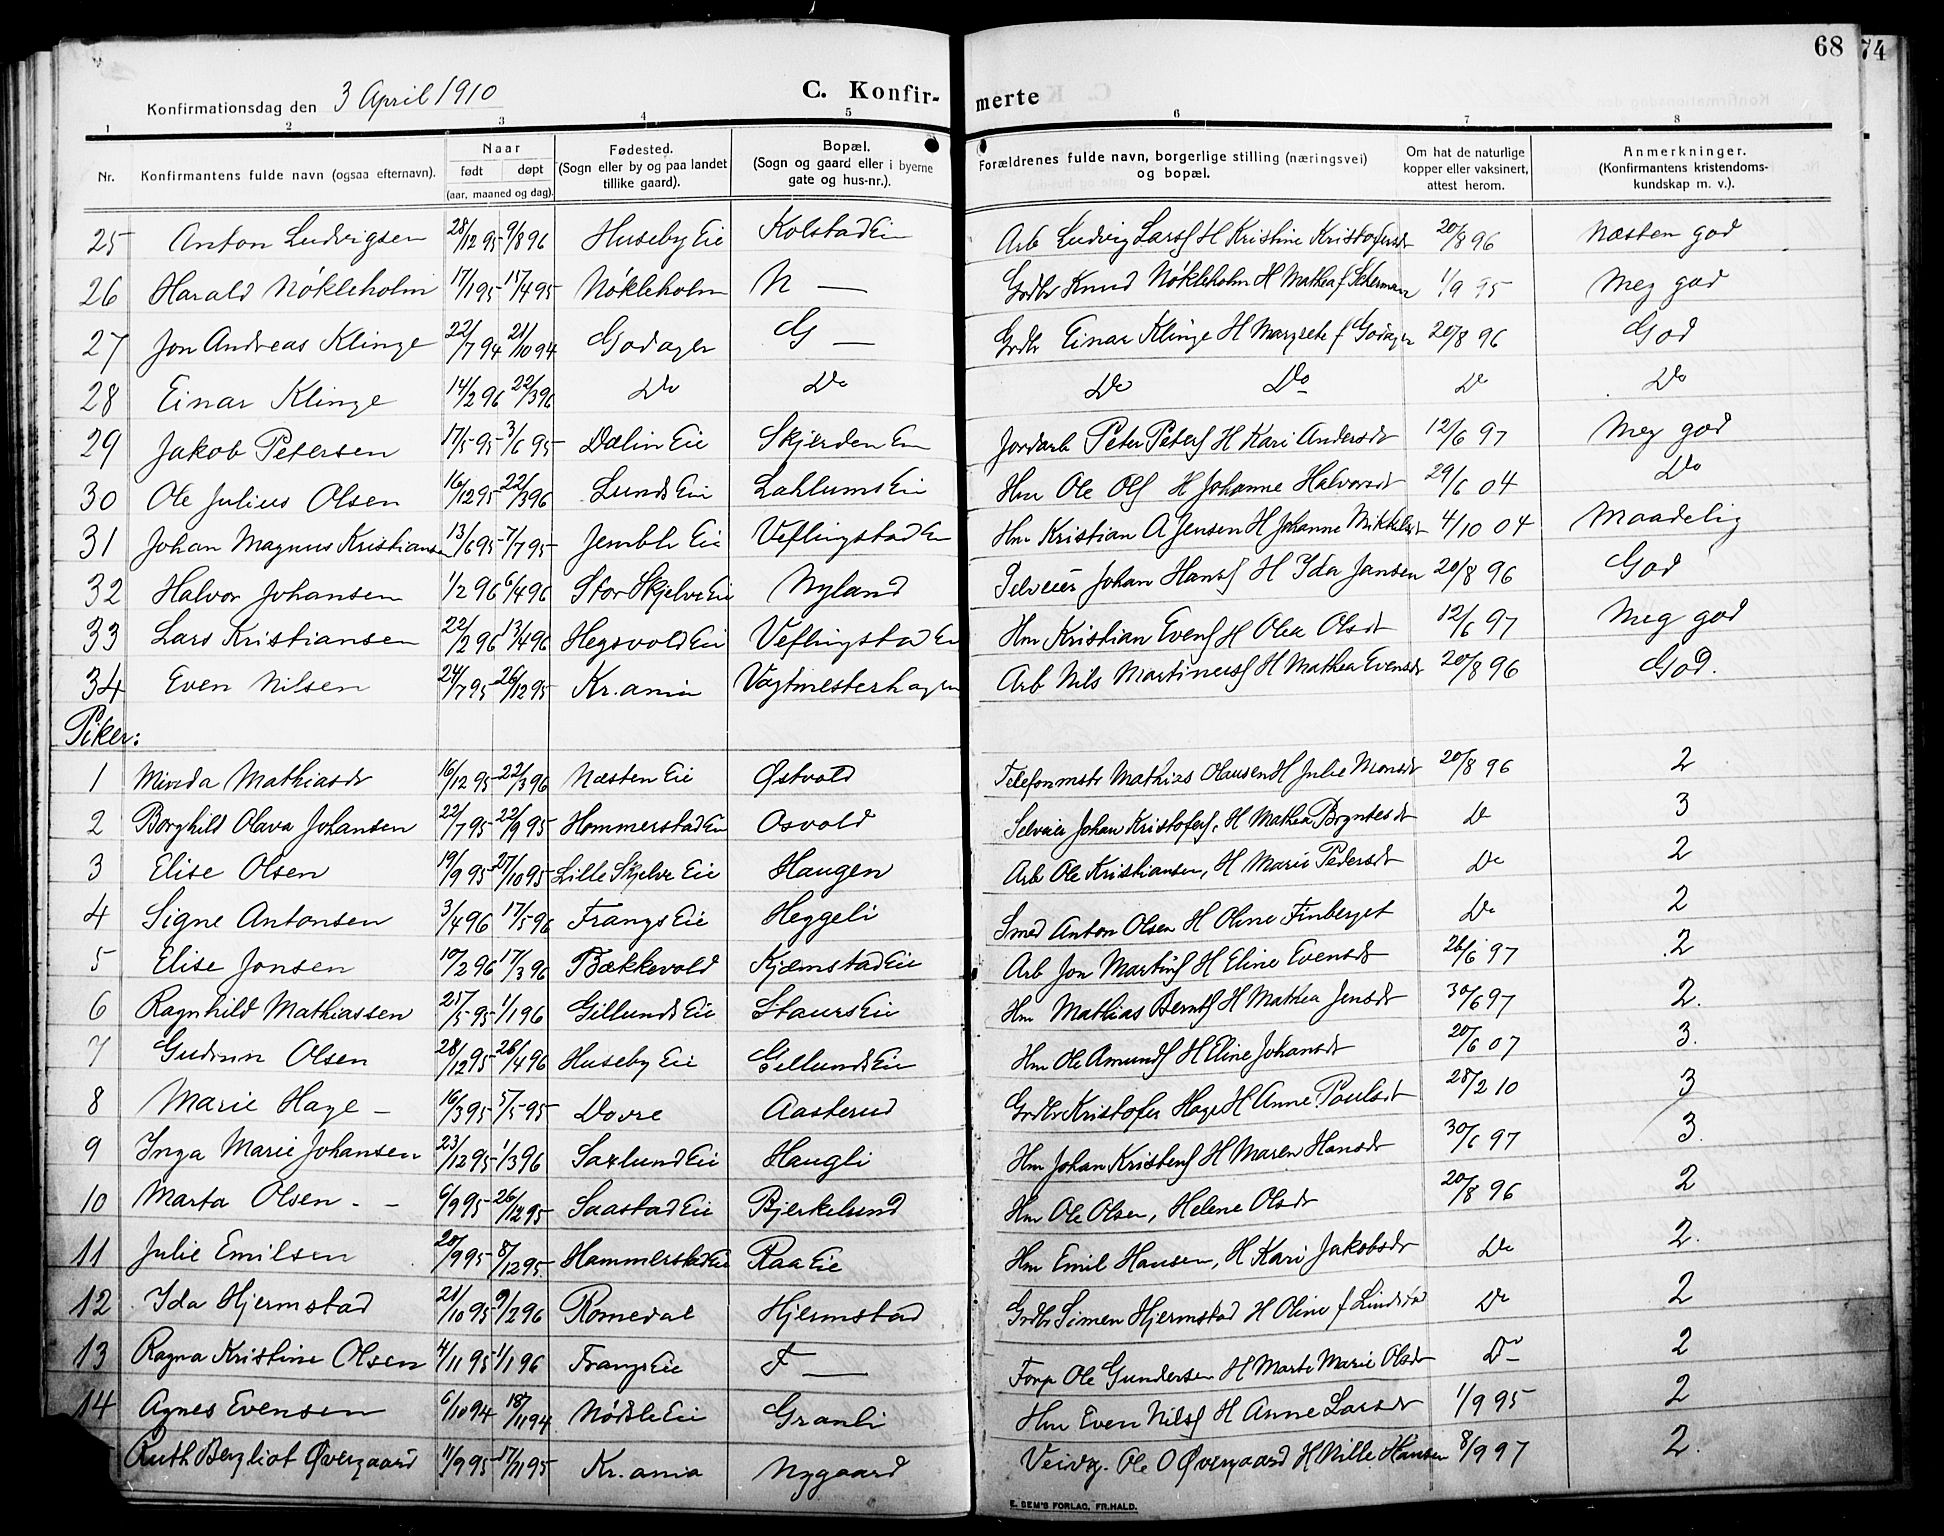 68 74
Konfirmationsdag den 3 April 1910 C. Konfir- merte
1 2 3 4 5 6 7 8
Nr. Konfirmantens fulde navn (ogsaa efternavn). Naar født døpt (aar, maaned og dag). Fødested. (Sogn eller by og paa landet tillike gaard). Bopæl. (Sogn og gaard eller i byerne gate og hus-nr.). Forældrenes fulde navn, borgerlige stilling (næringsvei) og bopæl. Om hat de naturlige kopper eller vaksinert, attest herom. Anmerkninger. (Konfirmantens kristendoms-kundskap m. v.).
25 Anton Ludvigsen 28/12 95 9/8 96 Huseby Eie Kolstad Eie Arb Ludvig Lars H Kristine Kristofersdt 20/8 96 Næsten god
26 Harald Nøkleholm 17/1 95 15/4 95 Nøkleholm N — Grdbr Knud Nøkleholm H Mathea f 1/9 95 Meg god
27 Jon Andreas Klinge 22/7 94 21/10 94 Godager G — Grdbr Einar Klinge H Margrete f Godager 20/8 96 God
28 Einar Klinge 14/2 96 22/3 96 Do Do Do Do Do Do
29 Jakob Petersen 17/5 95 3/6 95 Dælin Eie Skjerden Eie Jordarb Peter Peters H Kari Andersdt 12/6 97 Meg god
30 Ole Julius Olsen 16/12 95 22/3 96 Lunds Eie Lahlums Eie Hm Ole Ols H Johanne Halvorsdt 29/6 04 Do
31 Johan Magnus Kristiansen 13/6 95 7/7 95 Jembli Eie Veflingstad Eie Hm Kristian A Jensen H Johanne Mikkelsdt 4/10 04 Maadelig
32 Halvor Johansen 1/2 96 6/4 96 Stor Skjelve Eie Nyland Selveier Johan Hans H Ida Jansen 20/8 96 God
33 Lars Kristiansen 22/2 96 13/4 96 Hegsvold Eie Veflingstad Eie Hm Kristian Evens H Olea Olsdt 12/6 97 Meg god
34 Even Nilsen 24/7 95 26/12 95 Kr.ania Vagtmesterhagen Arb Nils Martinus H Mathea Evensdt 20/8 96 God.
Piker:
1 Minda Mathiasdt 16/12 95 22/3 96 Næsten Eie Østvold Telefonmstr Mathias Olausen H Julie Monsdt 20/8 96 2
2 Borghild Olava Johansen 22/7 95 22/9 95 Hommerstad Eie Osvold Selveier Johan Kristofers, H Mathea Bryntesdt Do 3
3 Elise Olsen 19/9 95 27/10 95 Lille Skjelve Eie Haugen Arb Ole Kristiansen, H Marie Pedersdt Do 2
4 Signe Antonsen 3/4 96 17/5 96 Frangs Eie Heggeli Smed Anton Olsen H Oline Finberget Do 2
5 Elise Jonsen 10/2 96 17/3 96 Bækkevold Kjæmstad Eie Arb Jon Martins H Eline Evensdt 26/6 97 2
6 Ragnhild Mathiassen 25/5 95 1/1 96 Gillunds Eie Staurs Eie Hm Mathias Bernts H Mathea Jensdt 30/6 97 2.
7 Gudrun Olsen 28/12 95 26/4 96 Huseby Eie Gillunds Eie Hm Ole Amunds H Eline Johansdt 20/6 07 3.
8 Marie Hage – 16/3 95 5/5 95 Dovre Aasterud Grdbr Kristofer Hage H Anne Paulsdt 28/2 10 3
9 Inga Marie Johansen 23/12 95 1/3 96 Saxlund Eie Haugli Hm Johan Kristens H Maren Hansdt 30/6 97 3.
10 Marta Olsen - – 6/9 95 26/12 95 Saastad Eie Bjerkelund Hm Ole Olsen, Helene Olsdt 20/8 96 2
11 Julie Emilsen 20/9 95 8/12 95 Hammerstad Eie Raa Eie Hm Emil Hansen, H Kari Jakobsdt Do 2.
12 Ida Hjermstad 21/10 95 9/2 96 Romedal Hjermstad Grdbr Simen Hjermstad H Oline f Do 2
13 Ragna Kristine Olsen 4/11 95 1/1 96 Frangs Eie F — Forp Ole Gundersen H Marte Marie Olsdt Do 2
14 Agnes Evensen 6/10 94 18/11 94 Nødsle Eie Granli Hm Even Nils H Anne Larsdt 1/9 95 2
Ruth Bergliot Øvergaard 11/9 95 17/11 95 Kr.ania Nygaard Veivg. Ole O Øvergaard H Nille Hansen 8/9 97 2.
E. SEM'S FORLAG, FR.HALD.